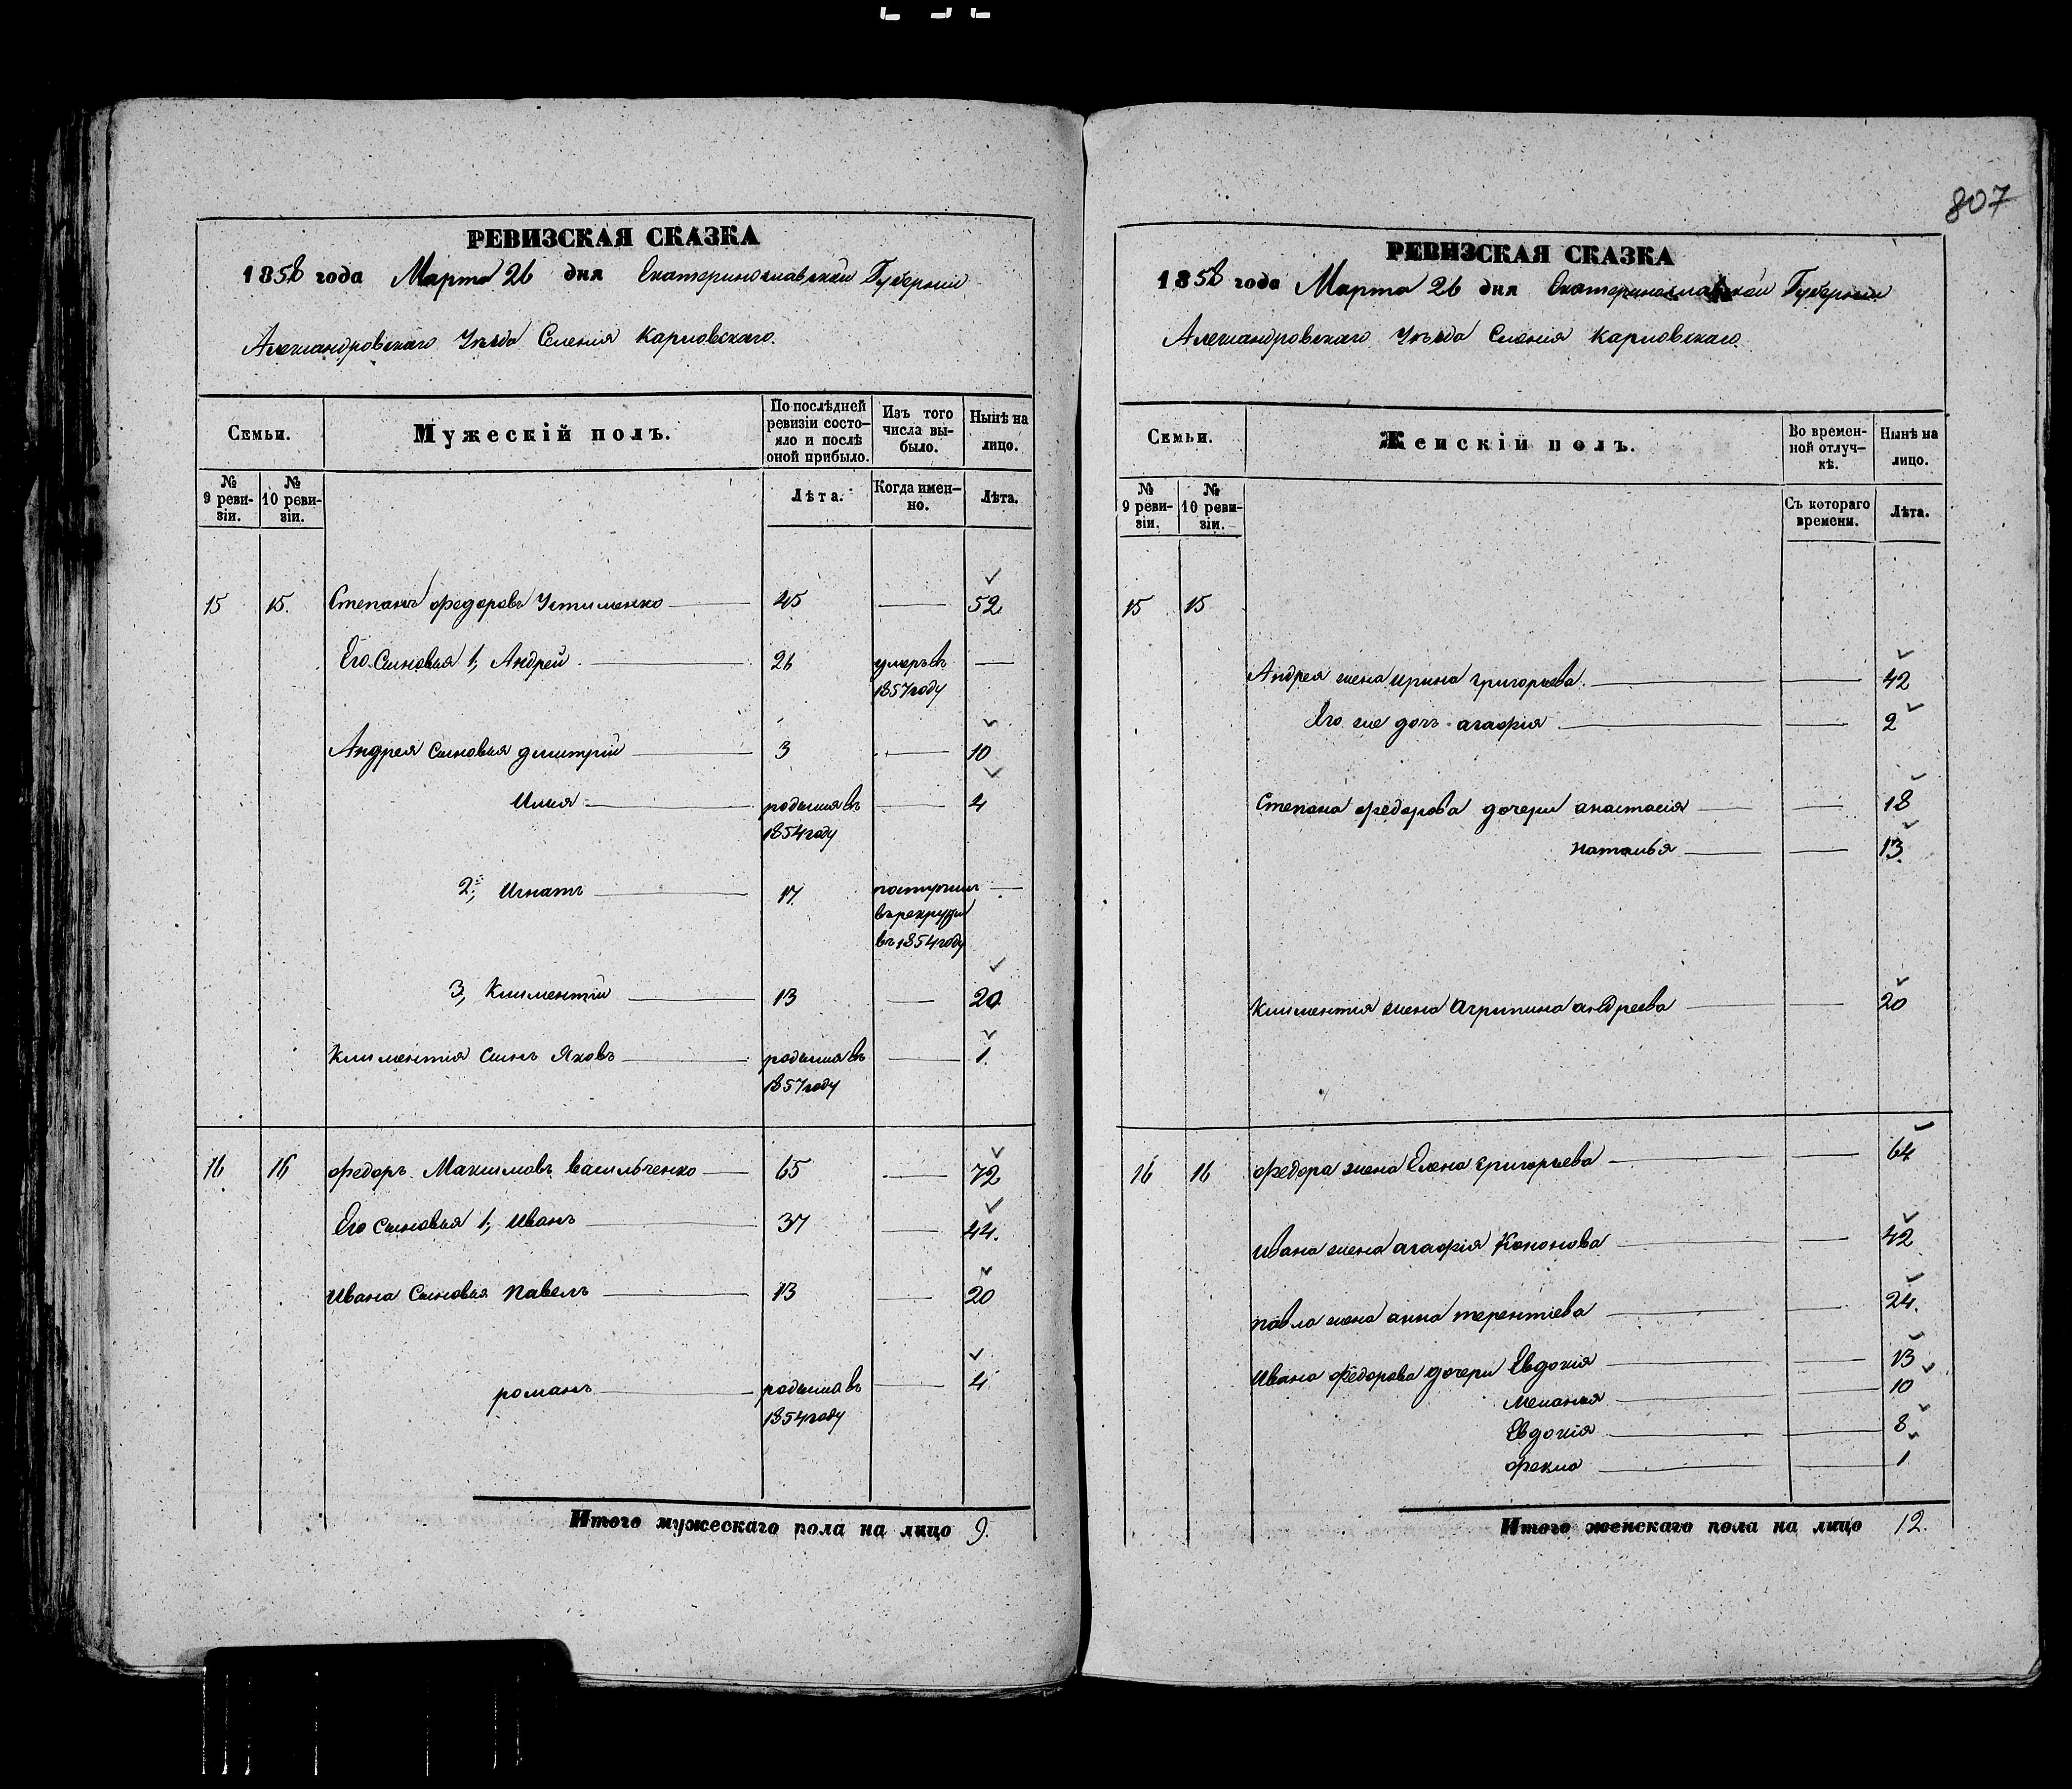 807
РЕВИЗСКАЯ СКАЗКА
1858 года Марта 26 дня Екатеринославской Губернии
Александровскаго Уѣзда Сленія Карловскаго.
Семьи.
Мужескій полъ.
По послѣдней ревизіи состо-яло и послѣ оной прибыло.
Изъ того числа вы-было.
Нынѣ на лицо.
№ 9 реви-зіи.
№ 10 реви-зіи.
Лѣта.
Когда имен-но.
Лѣта.
15 15. Степанъ федоровъ Устименко 45 — 52
Его Сыновья 1, Андрей 26 умеръ въ —
1857 году
Андрея сыновья дмитрій 3 — 10
Илия родился въ — 4
1854 году
2, Игнатъ 17. поступилъ —
въ рекруты
въ 1854 году
3, Климентій 13 — 20
Климентія Сынъ Яковъ родился въ — 1.
1857 году
16 16 федоръ Максимовъ васильченко 65 — 72
Его сыновья 1, Иванъ 37 — 44.
Ивана Сыновья Павелъ 13 — 20
романъ родился въ — 4
1854 году
Итого мужескаго пола на лицо 9.
РЕВИЗСКАЯ СКАЗКА
1858 года Марта 26 дня Екатеринославской Губернии
Александровскаго Уѣзда Сленія Карловскаго.
Семьи.
Женскій полъ.
Во времен-ной отлуч-кѣ.
Нынѣ на лицо.
№ 9 реви-зіи.
№ 10 реви-зіи.
Съ котораго времени.
Лѣта.
15 15
Андрея жена ирина григорьева. — 42
Его же дочь агафія — 2
Степана федорова дочери анастасія — 18
наталья — 13.
Климентія жена Агрипина андреева — 20
16 16 федора жена Елена григорьева — 64
ивана жена агафія Кононова — 42
павла жена анна терентіева — 24.
ивана федорова дочери Евдокія — 13
Меланья — 10
Евдокія — 8
фекла — 1
Итого женскаго пола на лицо 12.